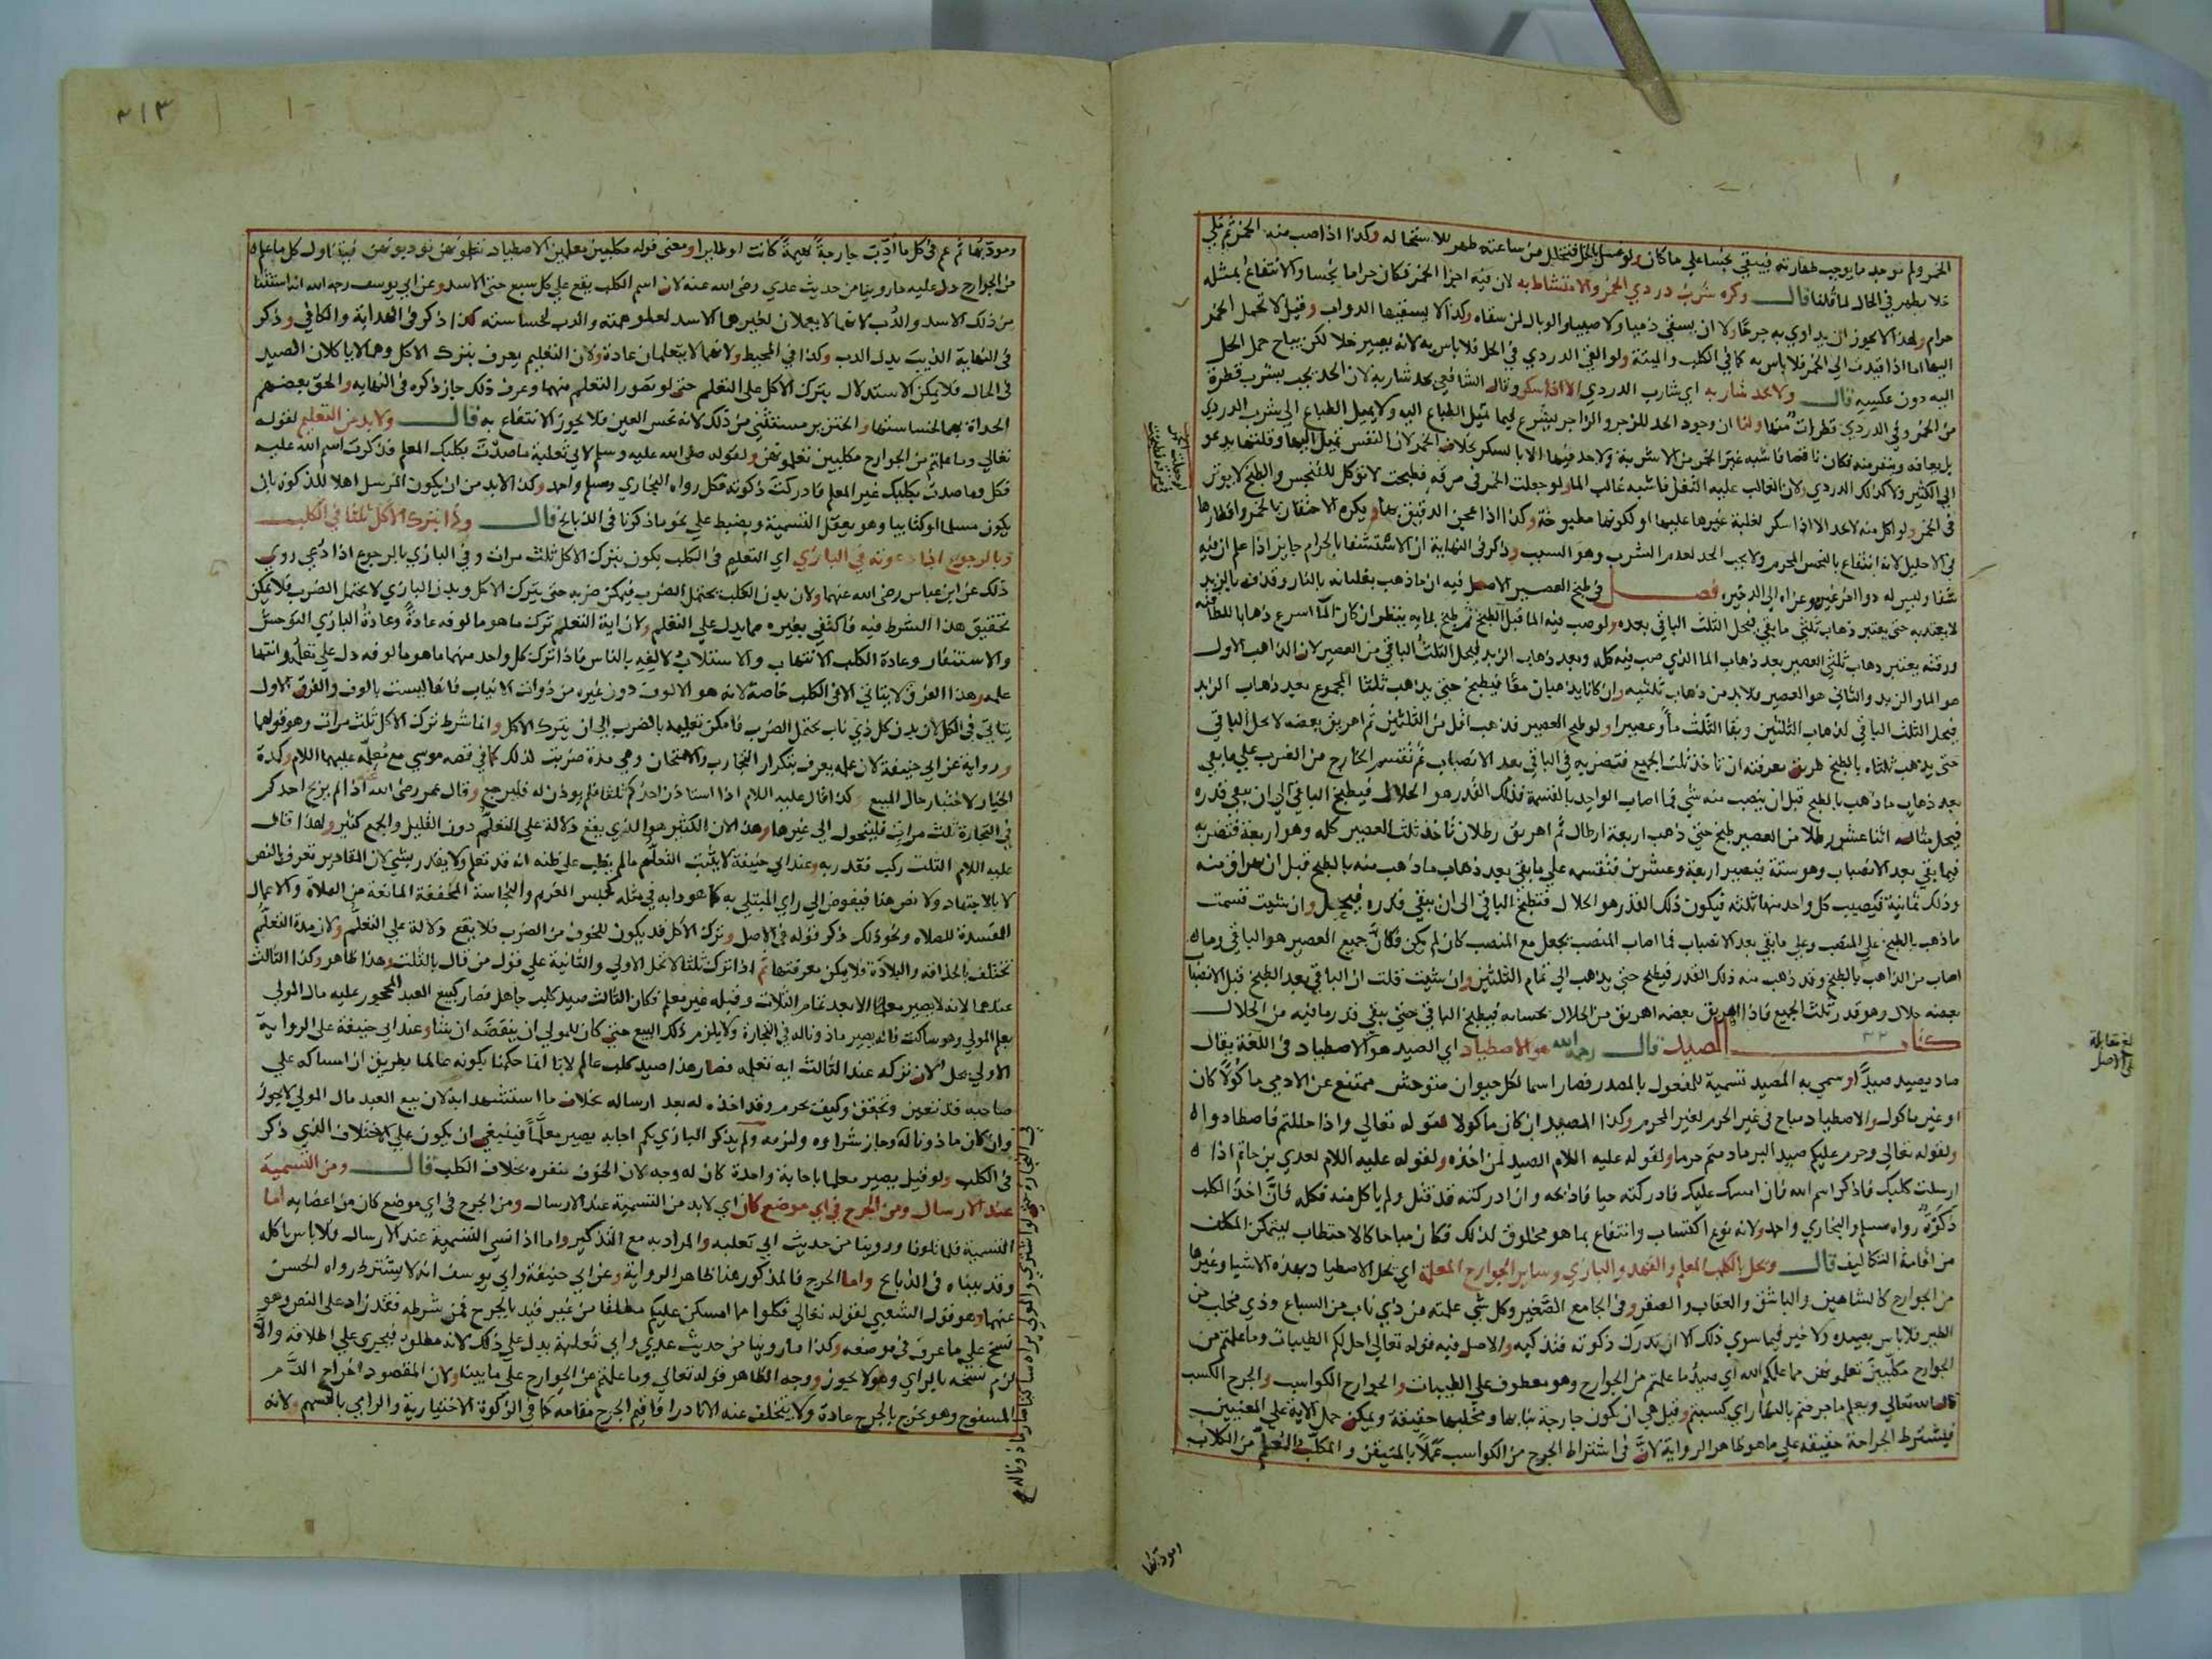 الخمر ولم يوجد ما يوجب طهارته فيبقى نجسا على ما كان ولو غسل بالخل فتخلل من ساعته طهر للاستحالة وكذا اذا صب منه الخمر ثم ملي
خلا يطهر في الحال لما قلنا قال وكره شرب دردي الخمر والامتشاط به لان فيه اجزا الخمر فكان حراما نجسا والانتفاع بمثله
حرام ولهذا لا يجوز ان يداوي به جرحا ولا ان يسقي ذميا ولا صبيا والوبال لمن سقاه وكذا لا يسقيها الدواب وقيل لا تحمل الخمر
اليها اما اذا قيدت الى الخمر فلا باس به كما في الكلب والميتة ولو القي الدردي في الخل فلا باس به لانه يصير خلا لكن يباح حمل الخل
اليه دون عكسه قال ولا يحد شاربه اي شارب الدردي الا اذا سكر وقال الشافعي يحد شاربه لان الحد يجب بشرب قطرة
من الخمر وفي الدردي قطرات منها ولنا ان وجود الحد للزجر والزاجر يشرع فيما تميل الطباع اليه ولا يميل الطباع الى شرب الدردي
بل يعافه وينفر منه فكان ناقصا فاشبه غير الخمر من الاشربة ولا حد فيها الا بالسكر بخلاف الخمر لان النفس تميل اليها وقلتها يدعو
الى الكثير ولا كذلك الدردي ولان الغالب عليه الثفل فاشبه غالب الما ولو جعلت الخمر في مرقة فطبخت لا توكل للتنجس والطبخ لا يوثر
في الخمر ولو اكل منه لا يحد الا اذا سكر لغلبة غيرها عليها او لكونها مطبوخة وكذا اذا عجن الدقيق بها ويكره الاحتقان بالخمر واقطارها
في الاحليل لانه انتفاع بالنجس المحرم ولا يجب الحد لعدم الشرب وهو السبب وذكر في النهاية ان الاستشفا بالحرام جايز اذا علم ان فيه
شفا وليس له دوا اخر غيره وعزاه الى الذخيره فصل في طبخ العصير الاصل فيه ان ما ذهب بغليانه بالنار وقذفه بالزبد
لا يعتد به حتى يعتبر ذهاب ثلثي ما بقي فيحل الثلث الباقي بعده ولو صب فيه الما قبل الطبخ ثم طبخ بمايه ينظر ان كان الما اسرع ذهابا للطافته
ورقته يعتبر ذهاب ثلثي العصير بعد ذهاب الما الذي صب فيه كله وبعد ذهاب الزبد فيحل الثلث الباقي من العصير لان الذاهب الاول
هو الما والزبد والثاني هو العصير فلا بد من ذهاب ثلثيه وان كانا يذهبان معا فيطبخ حتى يذهب ثلثا المجموع بعد ذهاب الزبد
فيحل الثلث الباقي لذهاب الثلثين وبقا الثلث ما وعصيرا ولو طبخ العصير فذهب اقل من الثلثين ثم اهريق بعضه لا يحل الباقي
حتى يذهب ثلثاه بالطبخ طريق معرفته ان تاخذ ثلث الجميع فتضربه في الباقي بعد الانصباب ثم تقسم الخارج من الضرب على ما بقي
بعد ذهاب ما ذهب بالطبخ قبل ان ينصب منه شي فما اصاب الواحد بالقسمة فذلك القدر هو الحلال فيطبخ الباقي الى ان يبقى قدره
فيحل مثاله اثنا عشر رطلا من العصير طبخ حتى ذهب اربعة ارطال ثم اهريق رطلان تاخذ ثلث العصير كله وهو اربعة فتضربه
فيما بقي بعد الانصباب وهو ستة فيصير اربعة وعشرين فتقسمه على ما بقي بعد ذهاب ما ذهب منه بالطبخ قبل ان يهراق منه
وذلك ثمانية فيصيب كل واحد منها ثلثه فيكون ذلك القدر هو الحلال فتطبخ الباقي الى ان يبقى قدره فيحل وان شيت قسمت
ما ذهب بالطبخ على المنصب وعلى ما بقي بعد الانصباب فما اصاب المنصب يجعل مع المنصب كان لم يكن فكان جميع العصير هو الباقي وما
اصاب من الذاهب بالطبخ وقد ذهب منه ذلك القدر فيطبخ حتى يذهب الى تمام الثلثين وان شيت قلت ان الباقي بعد الطبخ قبل الانصباب
بعضه حلال وهو قدر ثلث الجميع فاذا اهريق بعضه اهريق من الحلال بحسابه فيطبخ الباقي حتى يبقى قدر ما فيه من الحلال
كتاب الصيد قال رحمه الله هو الاصطياد اي الصيد هو الاصطياد في اللغة يقال
صاد يصيد صيدا وسمي به المصيد تسمية للمفعول بالمصدر فصار اسما لكل حيوان متوحش ممتنع عن الادمي ماكولا كان
او غير ماكول والاصطياد مباح في غير الحرم لغير المحرم وكذا المصيد ان كان ماكولا لقوله تعالى واذا حللتم فاصطادوا
ولقوله تعالى وحرم عليكم صيد البر ما دمتم حرما ولقوله عليه السلام الصيد لمن اخذه ولقوله عليه السلام لعدي بن حاتم اذا
ارسلت كلبك فاذكر اسم الله فان امسك عليك فادركته حيا فاذبحه وان ادركته قد قتل ولم ياكل منه فكله فان اخذ الكلب
ذكوة رواه مسلم والبخاري واحمد ولانه نوع اكتساب وانتفاع بما هو مخلوق لذلك فكان مباحا كالاحتطاب ليتمكن المكلف
من اقامة التكاليف قال ويحل بالكلب المعلم والفهد والبازي وساير الجوارح المعلمة اي يحل الاصطياد بهذه الاشيا وغيرها
من الجوارح كالشاهين والباشق والعقاب والصقر وفي الجامع الصغير وكل شي علمته من ذي ناب من السباع وذي مخلب من
الطير فلا باس بصيده ولا خير فيما سوى ذلك الا ان تدرك ذكوته فتذكيه والاصل فيه قوله تعالى احل لكم الطيبات وما علمتم من
الجوارح مكلبين تعلمونهن مما علمكم الله اي صيد ما علمتم من الجوارح وهو معطوف على الطيبات والجوارح الكواسب والجرح الكسب
قال الله تعالى ويعلم ما جرحتم بالنهار اي كسبتم وقيل هي ان تكون جارحة بنابها ومخلبها حقيقة ويمكن حمل الاية على المعنيين
فيشترط الجراحة حقيقة على ما هو ظاهر الرواية لان في اشتراط الجرح من الكواسب عملا بالمتيقن والمكلب المعلم من الكلاب
ومودبها
بلغ مقابلة
على الاصل
٣١٣
ومودبها ثم عم في كل ما ادبت جارحة بهيمة كانت او طايرا ومعنى قوله مكلبين معلمين الاصطياد تعلمونهن تودبونهن فيتناول كل ما علم
من الجوارح دل عليه ما روينا من حديث عدي رضي الله عنه لان اسم الكلب يقع على كل سبع حتى الاسد وعن ابي يوسف رحمه الله انه استثنى
من ذلك الاسد والدب لانهما لا يعملان لغيرهما الاسد لعلو همته والدب لخساسته كذا ذكر في الهداية والكافي وذكر
في النهاية الذيب بدل الدب وكذا في المحيط ولانهما لا يتعلمان عادة ولان التعليم يعرف بترك الاكل وهما لا ياكلان الصيد
في الحال فلا يمكن الاستدلال بترك الاكل على التعلم حتى لو تصور التعلم منهما وعرف ذلك جاز ذكره في النهايه والحق بعضهم
الحداة بهما لخساستها والخنزير مستثنى من ذلك لانه نجس العين فلا يجوز الانتفاع به قال ولا بد من التعليم لقوله
تعالى وما علمتم من الجوارح مكلبين تعلمونهن ولقوله صلى الله عليه وسلم لابي ثعلبة ما صدت بكلبك المعلم فذكرت اسم الله عليه
فكل وما صدت بكلبك غير المعلم فادركت ذكوته فكل رواه البخاري ومسلم واحمد وكذا لا بد من ان يكون المرسل اهلا للذكوة بان
يكون مسلما او كتابيا وهو يعقل التسمية ويضبط على نحو ما ذكرنا في الذبايح قال وذا بترك الاكل ثلثا في الكلب
وبالرجوع اذا دعوته في البازي اي التعليم في الكلب يكون بترك الاكل ثلث مرات وفي البازي بالرجوع اذا دعي روي
ذلك عن ابن عباس رضي الله عنهما ولان بدن الكلب يحتمل الضرب فيمكن ضربه حتى يترك الاكل وبدن البازي لا يحتمل الضرب فلا يمكن
تحقيق هذا الشرط فيه فاكتفي بغيره مما يدل على التعلم ولان اية التعلم ترك ما هو مالوفه عادة وعادة البازي التوحش
والاستنفار وعادة الكلب الانتهاب والاستلاب لالفه بالناس فاذا ترك كل واحد منهما ما هو مالوفه دل على تعلمه وانتها
علمه وهذا الفرق لا يتاتى الا في الكلب خاصة لانه هو الالوف دون غيره من ذوات الانياب فانها ليست بالوف والفرق الاول
يتاتى في الكل لان بدن كل ذي ناب يحتمل الضرب فامكن تعليمه بالضرب الى ان يترك الاكل وانما شرط ترك الاكل ثلث مرات وهو قولهما
ورواية عن ابي حنيفة لان علمه يعرف بتكرار التجارب والامتحان وهي مدة ضربت لذلك كما في قصه موسي مع معلمه عليهما السلام وكمدة
الخيار لاختبار حال المبيع وكذا قال عليه السلام اذا استاذن احدكم ثلثا فلم يوذن له فليرجع وقال عمر رضي الله عنه اذا لم يربح احدكم
في التجارة ثلث مرات فليتحول الى غيرها وهذا لان الكثير هو الذي يقع دلالة على التعلم دون القليل والجمع كثير ولهذا قال
عليه السلام الثلث ركب فقدر به وعند ابي حنيفة لا يثبت التعلم ما لم يغلب على ظنه انه قد تعلم ولا يقدر بشي لان المقادير تعرف بالنص
لا بالاجتهاد ولا نص هنا فيفوض الى راي المبتلى به كما هو دابه في مثله كحبس الغريم والنجاسة المخففة المانعة من الصلاة والاعمال
المفسدة للصلاه ونحو ذلك ذكر قوله في الاصل وترك الاكل قد يكون للخوف من الضرب فلا يقع دلالة على التعلم ولان مدة التعلم
تختلف بالحذاقه والبلادة فلا يمكن معرفتها ثم اذا ترك ثلثا لا تحل الاولى والثانية على قول من قال بالثلث وهذا ظاهر وكذا الثالث
عندهما لانه لا يصير معلما الا بعد تمام الثلاث وقبله غير معلم فكان الثالث صيد كلب جاهل فصار كبيع العبد المحجور عليه مال المولى
بعلم المولى وهو ساكت فانه يصير ماذونا له في التجارة ولا يلزم ذلك البيع حتى كان للمولى ان ينقضه ان شا وعند ابي حنيفة على الرواية
الاولى يحل لان تركه عند الثالث اية تعلمه فصار هذا صيد كلب عالم لانا انما حكمنا بكونه عالما بطريق ان امساكه على
صاحبه قد تعين وتحقق وكيف يحرم وقد اخذه له بعد ارساله بخلاف ما استشهدا به لان بيع العبد مال المولى لا يجوز
وان كان ماذونا له وجاز شراوه ولزمه ولم يذكر البازي بكم اجابه يصير معلما فينبغي ان يكون على الاختلاف الذي ذكر
في الكلب ولو قيل يصير معلما باجابة واحدة كان له وجه لان الخوف ينفره بخلاف الكلب قال ومن التسمية
عند الارسال ومن الجرح في اي موضع كان اي لا بد من التسمية عند الارسال ومن الجرح في اي موضع كان من اعضايه اما
التسمية فلما تلونا وروينا من حديث ابي ثعلبه والمراد به مع التذكير واما اذا نسي التسمية عند الارسال فلا باس باكله
وقد بيناه في الذبايح واما الجرح فالمذكور هنا ظاهر الرواية وعن ابي حنيفة وابي يوسف انه لا يشترط رواه الحسن
عنهما وهو قول الشعبي لقوله تعالى فكلوا مما امسكن عليكم مطلقا من غير قيد بالجرح فمن شرطه فقد زاد على النص وهو
نسخ على ما عرف في موضعه وكذا ما روينا من حديث عدي وابي ثعلبة يدل على ذلك لانه مطلق فيجري على اطلاقه والا
لزم نسخه بالراي وهو لا يجوز ووجه الظاهر قوله تعالى وما علمتم من الجوارح على ما بينا ولان المقصود اخراج الدم
المسفوح وهو يخرج بالجرح عادة ولا يتخلف عنه الا نادرا فاقيم الجرح مقامه كما في الذكوة الاختيارية والرامي بالسهم ولانه